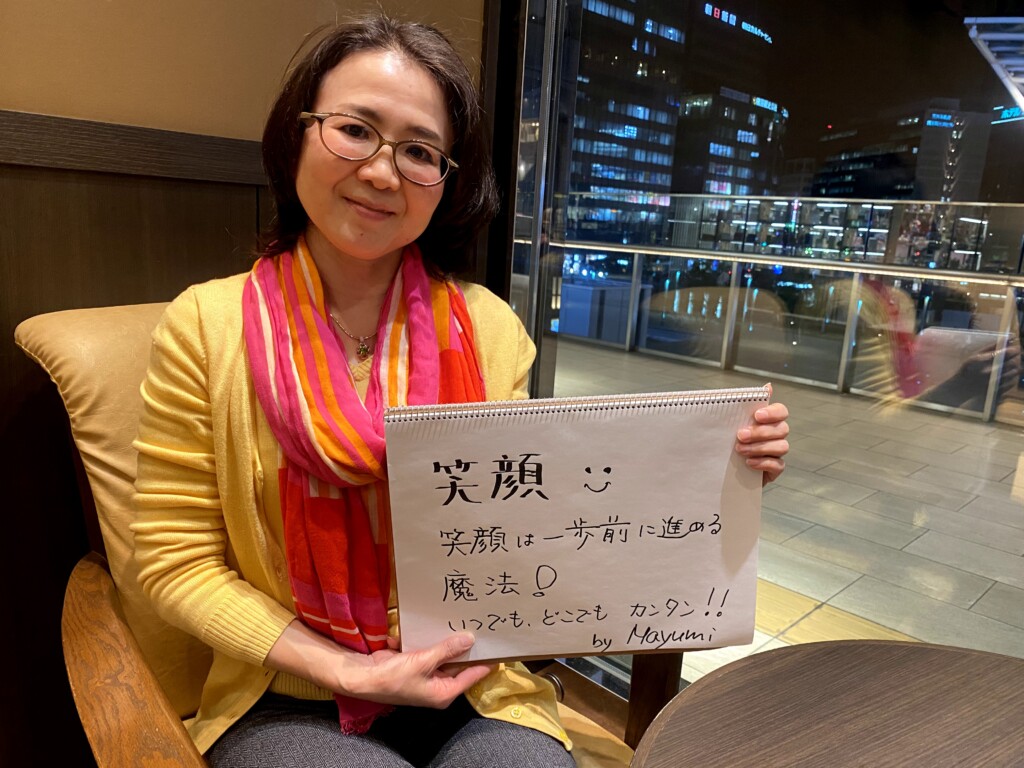 笑顔
笑顔は一歩前に進める
魔法!
いつでも、どこでも カンタン!!
by Mayumi